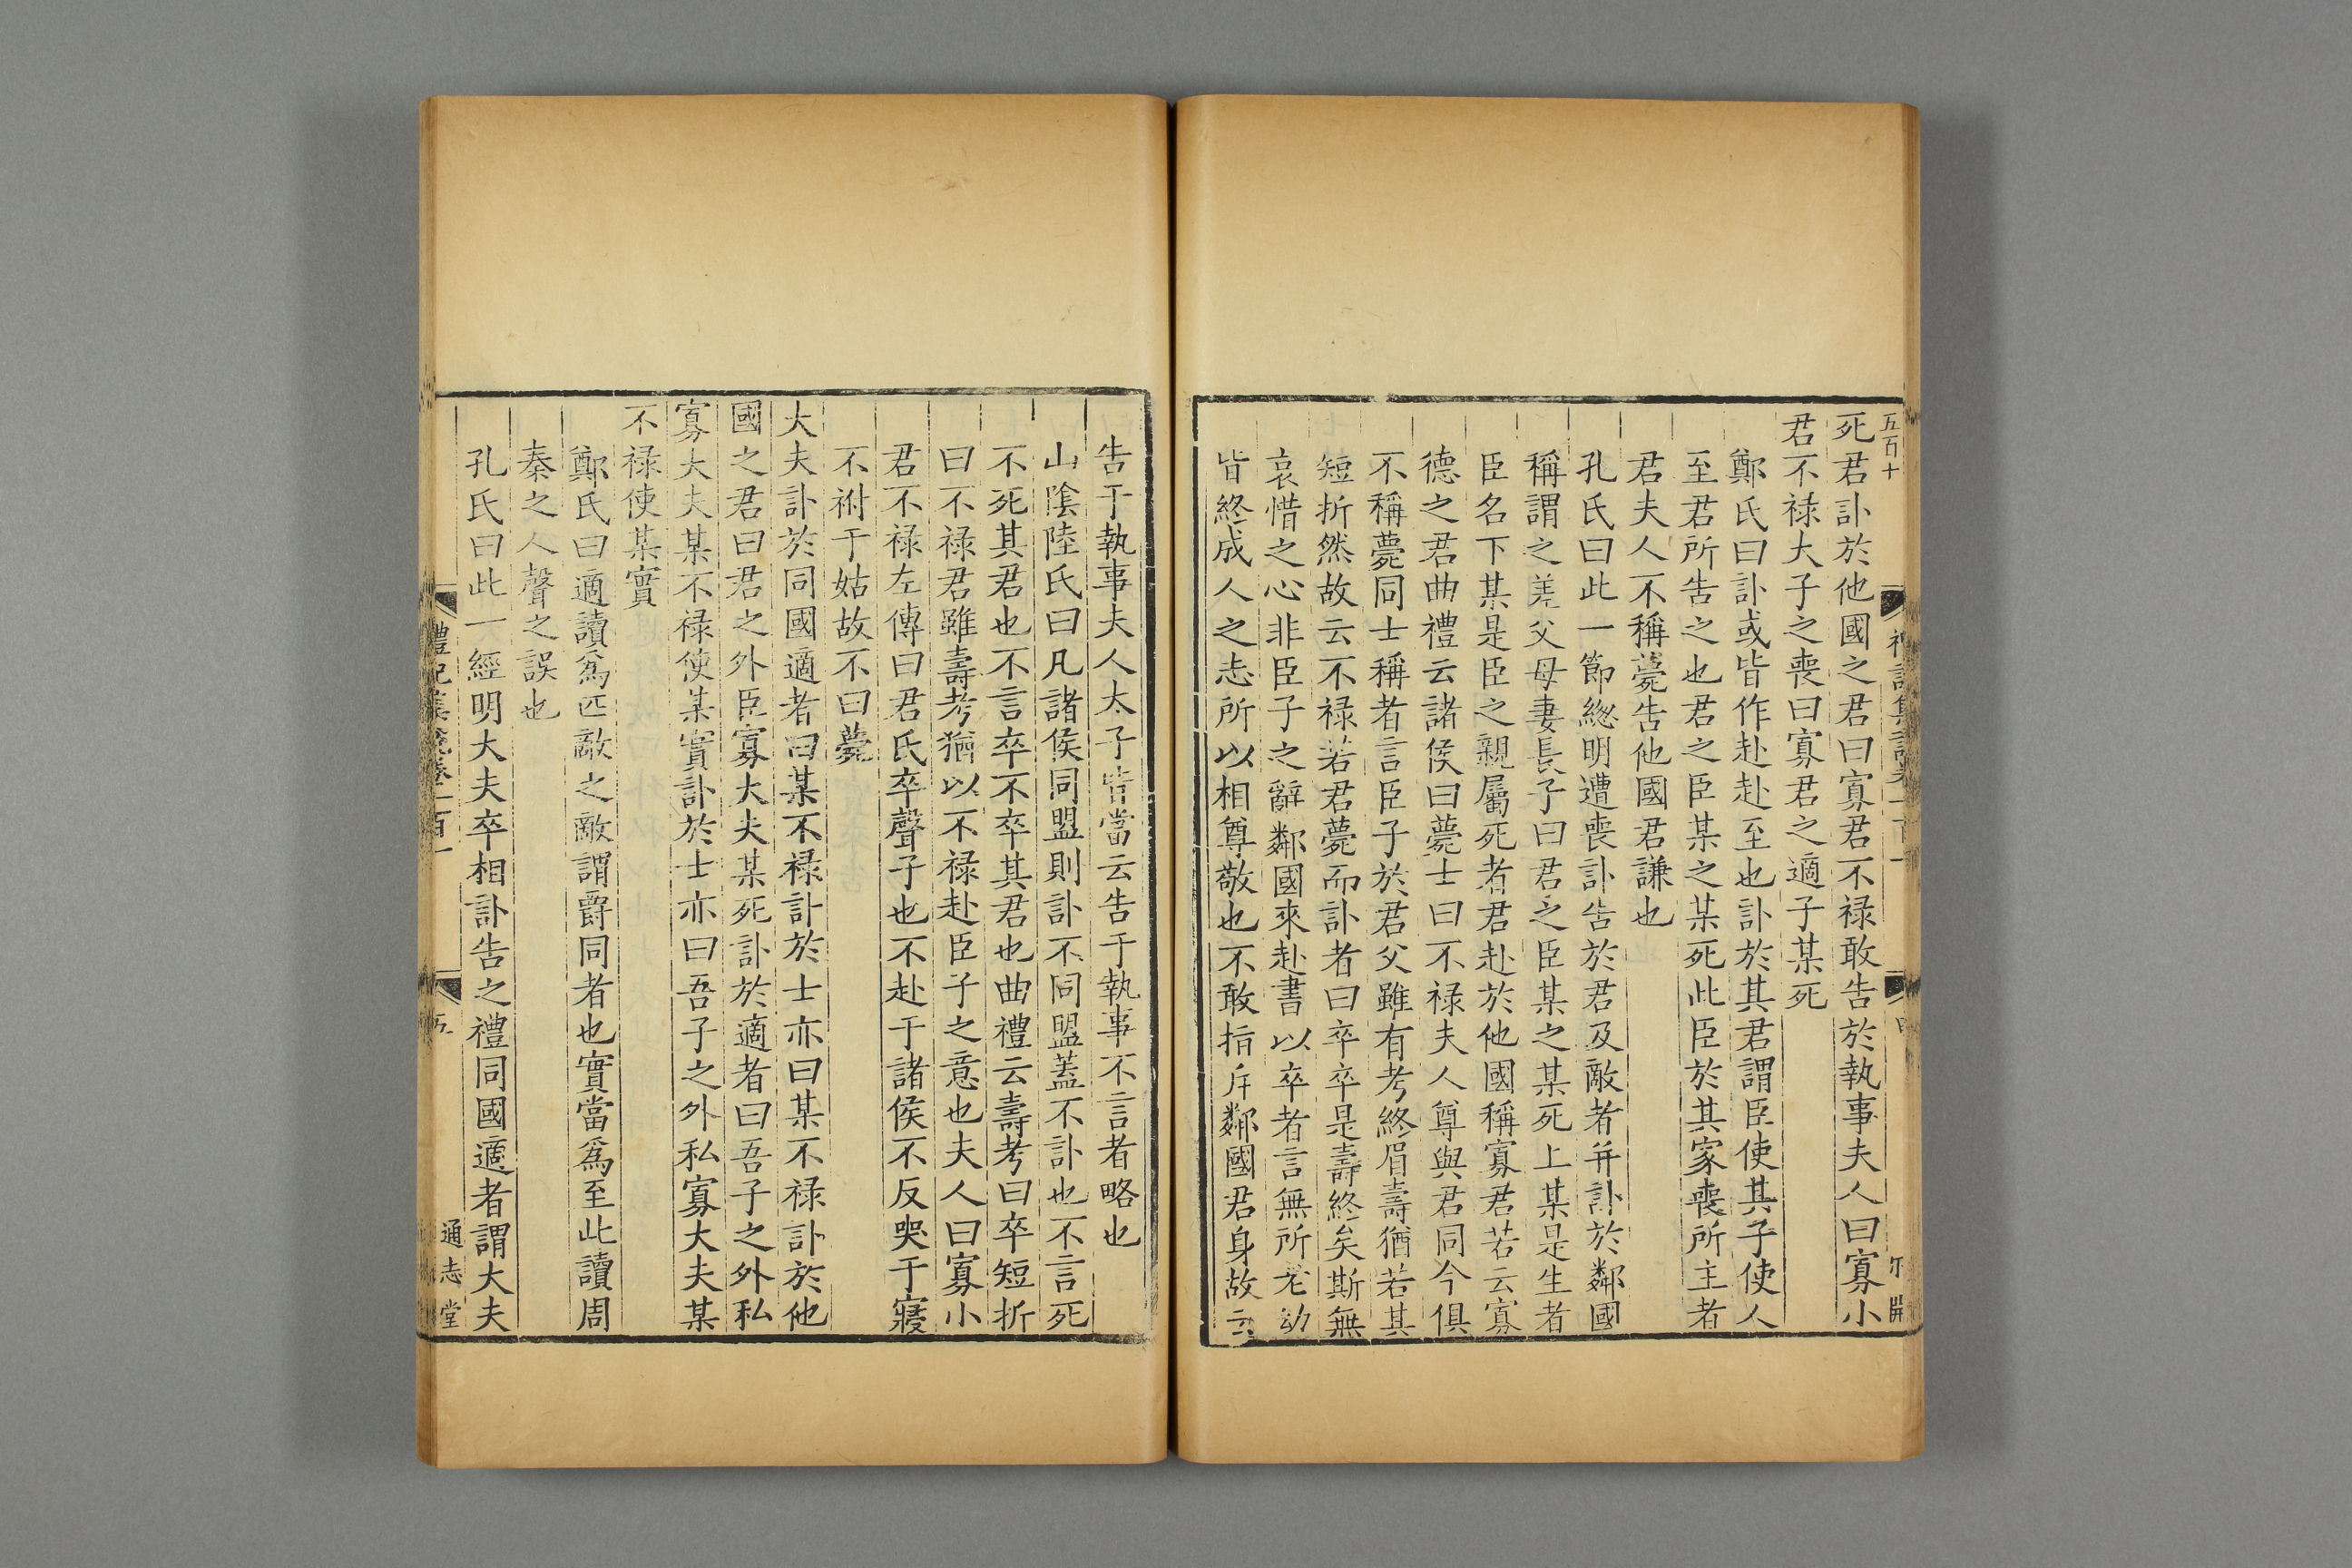 五百十
死君訃於他國之君曰寡君不禄敢告於執事夫人曰寡小
君不禄大子之喪曰寡君之適子某死
鄭氏曰訃或皆作赴赴至也訃於其君謂臣使其子使人
至君所告之也君之臣某之某死此臣於其家喪所主者
君夫人不稱薨告他國君謙也
孔氏曰此一節緫明遭喪訃告於君及敵者并訃於鄰國
稱謂之差父母妻長子曰君之臣某之某死上某是生者
臣名下某是臣之親屬死者君赴於他國稱寡君若云寡
德之君曲禮云諸侯曰薨士曰不禄夫人尊與君同今俱
不稱薨同士稱者言臣子於君父雖有考終眉壽猶若其
短折然故云不禄若君薨而訃者曰卒卒是壽終矣斯無
哀惜之心非臣子之辭鄰國來赴書以卒者言無所老幼
皆終成人之志所以相尊敬也不敢指斥鄰國君身故云
告于執事夫人太子皆當云告于執事不言者略也
山隂陸氏曰凡諸侯同盟則訃不同盟蓋不訃也不言死
不死其君也不言卒不卒其君也曲禮云壽考曰卒短折
曰不禄君雖壽考猶以不禄赴臣子之意也夫人曰寡小
君不禄左傳曰君氏卒聲子也不赴于諸侯不反哭于寢
不祔于姑故不曰薨
大夫訃於同國適者曰某不禄訃於士亦曰某不禄訃於他
國之君曰君之外臣寡大夫某死訃於適者曰吾子之外私
寡大夫某不禄使某實訃於士亦曰吾子之外私寡大夫某
不禄使某實
鄭氏曰適讀爲匹敵之敵謂爵同者也實當爲至此讀周
秦之人聲之誤也
孔氏曰此一經明大夫卒相訃告之禮同國適者謂大夫
禮記集說卷一百一
五
通志堂